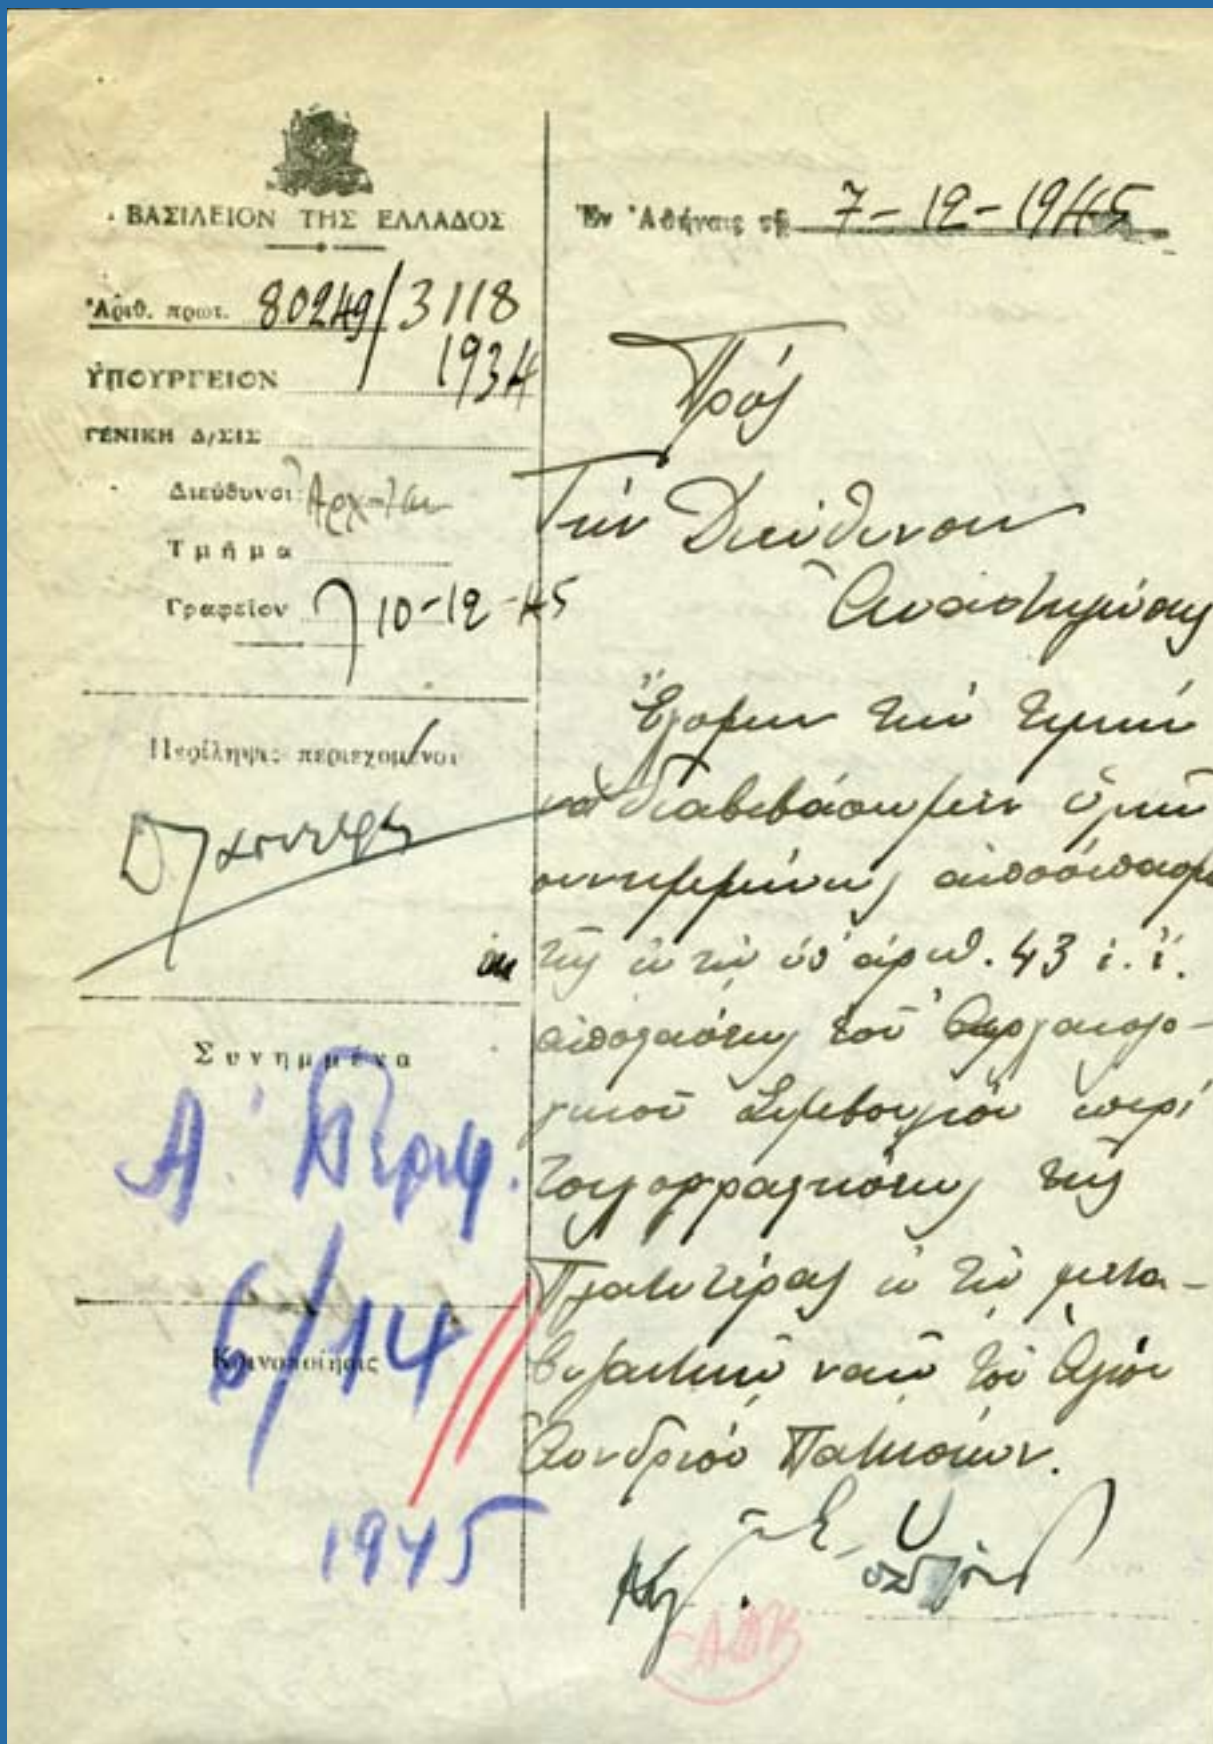 ΒΑΣΙΛΕΙΟΝ ΤΗΣ ΕΛΛΑΔΟΣ
Ἀριθ. πρωτ. 80249/3118
1934
ΥΠΟΥΡΓΕΙΟΝ
ΓΕΝΙΚΗ Δ/ΣΙΣ
Διεύθυνσι
Τμῆμα
Γραφεῖον 10-12-45
Περίληψις περιεχομένου
Συνημμένα
Α' Περιφ.
6/14
Κοινοποίησις
1945
Ἐν Ἀθήναις τῇ 7-12-1945
Πρός
Τὴν Διεύθυνσιν
Ἀναστηλώσεως
Ἔχομεν τὴν τιμὴν
νὰ διαβιβάσωμεν ὑμῖν
συνημμένως ἀπόσπασμα
τῆς ἐν τῇ ὑπ' ἀριθ. 43 ἐ. ἔ.
ἀποφάσεως τοῦ Ἀρχαιολο-
γικοῦ Συμβουλίου περὶ
τοιχογραφήσεως τῆς
Πλατυτέρας ἐν τῷ μετα-
βυζαντινῷ ναῷ τοῦ Ἁγίου
Ἀνδρέου Πατησίων.